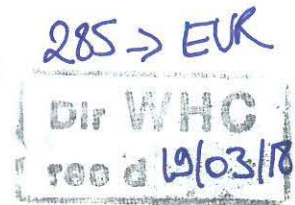 285 -> EUR
Dir WHC
rec'd 19/03/18